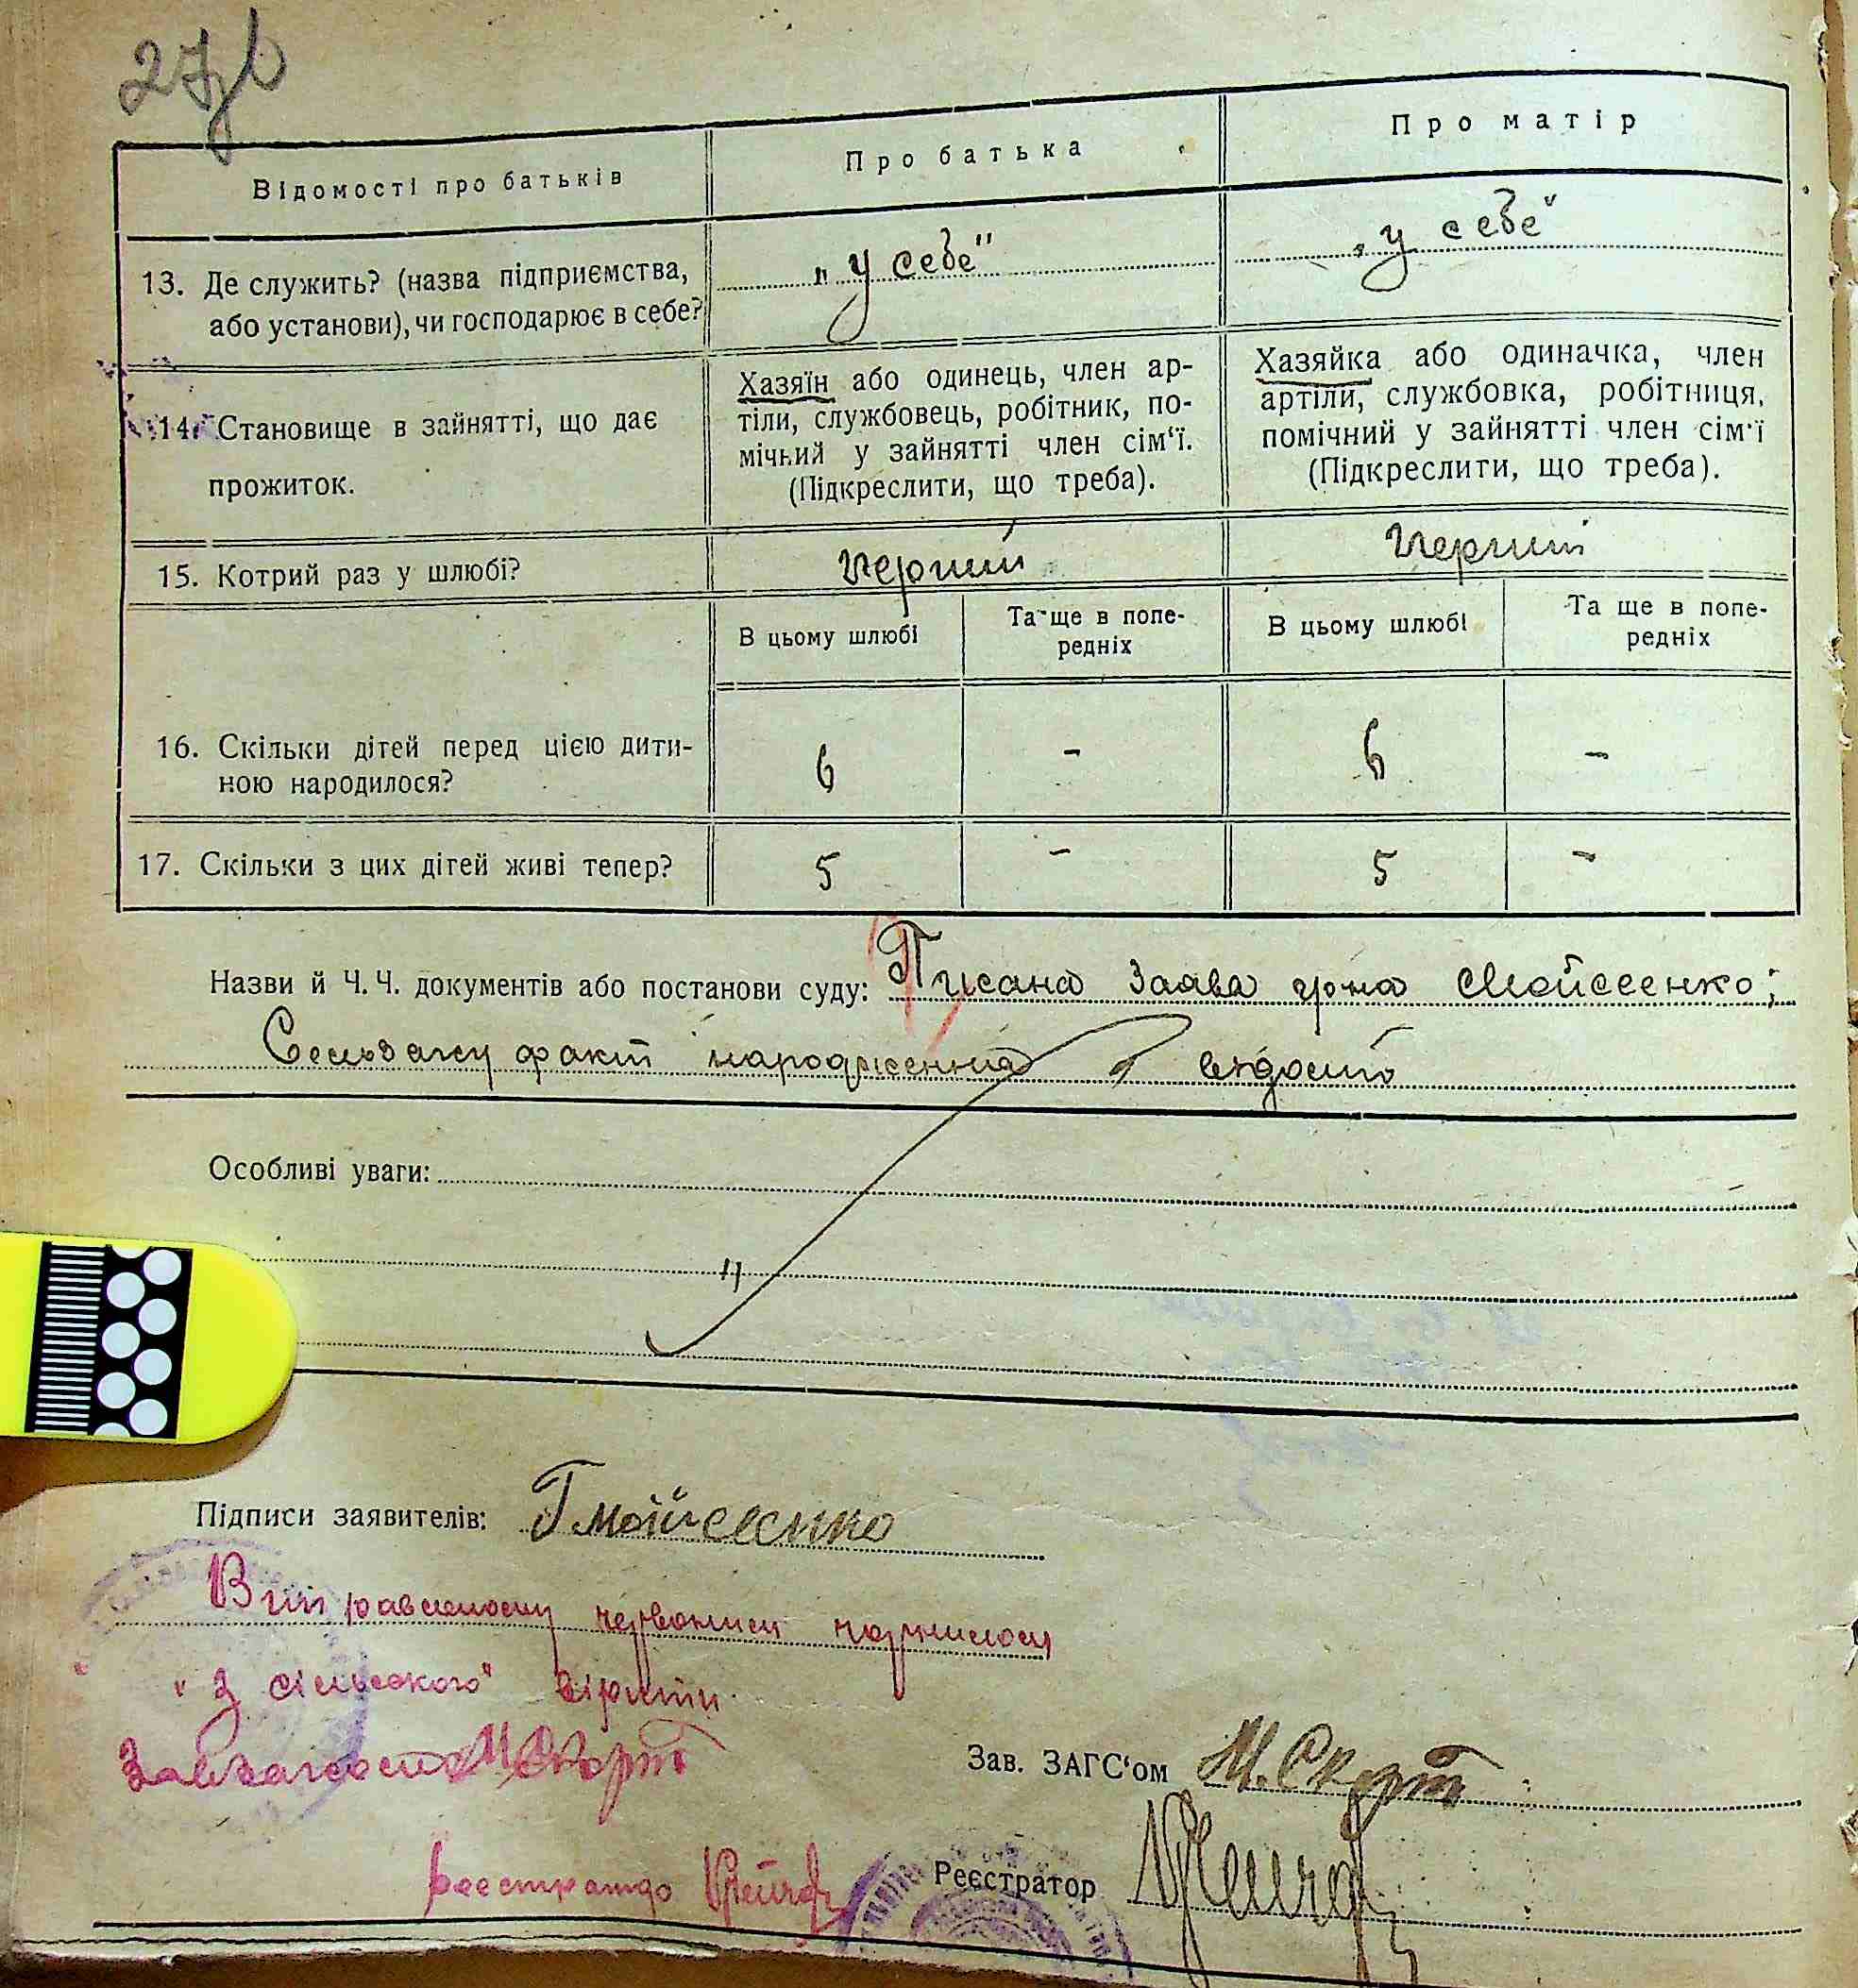 27
Відомості про батьків
Про батька
Про матір
13. Де служить? (назва підприємства,
або установи), чи господарює в себе?
„у себе"
„у себе"
14. Становище в зайнятті, що дає
прожиток.
Хазяїн або одинець, член ар-
тіли, службовець, робітник, по-
мічний у зайнятті член сім'ї.
(Підкреслити, що треба).
Хазяйка або одиначка, член
артіли, службовка, робітниця,
помічний у зайнятті член сім'ї
(Підкреслити, що треба).
15. Котрий раз у шлюбі?
Перший
Перший
В цьому шлюбі
Та ще в попе-
редніх
В цьому шлюбі
Та ще в попе-
редніх
16. Скільки дітей перед цією дити-
ною народилося?
6 - 6 -
17. Скільки з цих дітей живі тепер?
5 - 5 -
Назви й Ч. Ч. документів або постанови суду: Писана Заява гр-на Мойсеенко;
факт народження відомо
Особливі уваги:
Підписи заявителів: Г Мойсеенко
червоним чорнилом
„З сільського" вірити
М Скорт
Зав. ЗАГС'ом М. Скорт
реєстратор
Реєстратор